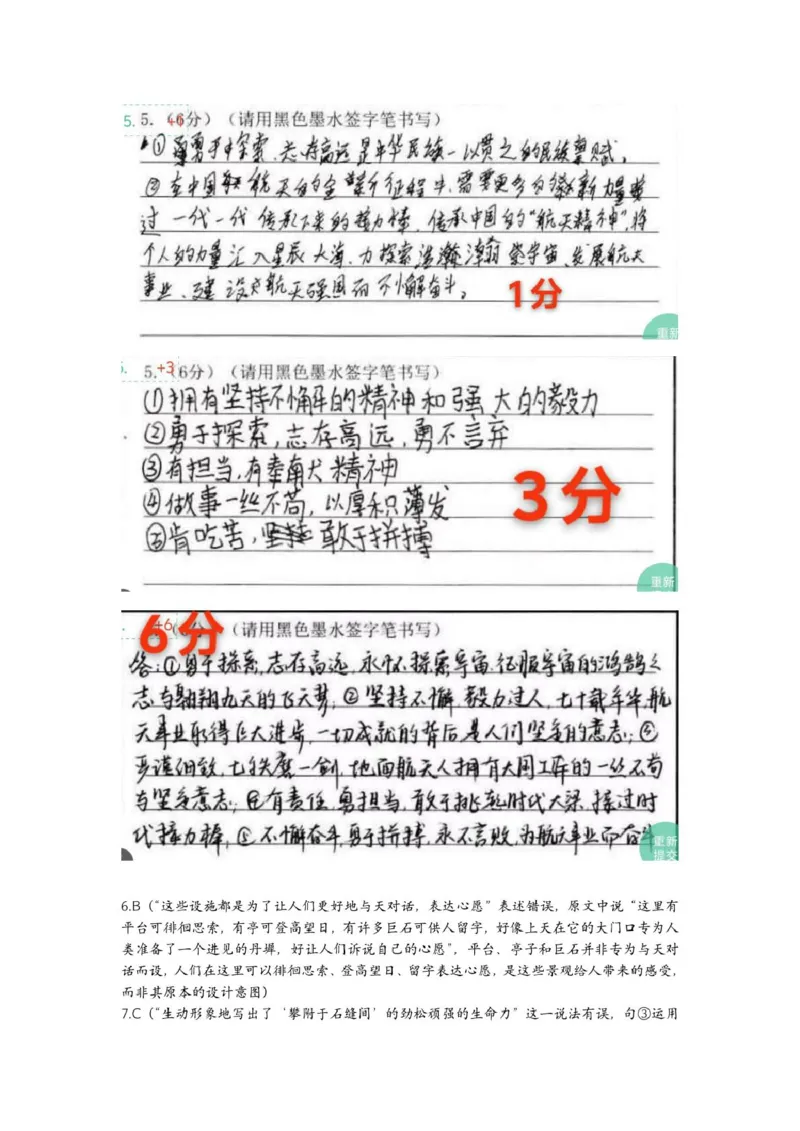 5. 5.（6分）（请用黑色墨水签字笔书写）
+1
①勇于探索、志存高远是中华民族一以贯之的民族禀赋。
②在中国航天的全新征程中,需要更多的新力量
过一代一代传承下来的接力棒、传承中国的“航天精神”,将
个人的力量汇入星辰大海、力探索浩瀚宇宙、发展航天
事业、建设航天强国而不懈奋斗。
1分
重新
5.（6分）（请用黑色墨水签字笔书写）
+3
①拥有坚持不懈的精神和强大的毅力
②勇于探索,志存高远,勇不言弃
③有担当,有奉献精神
④做事一丝不苟,以厚积薄发
⑤肯吃苦,敢于拼搏
3分
重新
+6
6分
（请用黑色墨水签字笔书写）
答:①勇于探索,志存高远,永怀探索宇宙、征服宇宙的鸿鹄之
志与翱翔九天的飞天梦;②坚持不懈,毅力过人,七十载年华,航
天事业取得巨大进步,一切成就的背后是人们坚毅的意志;④
严谨细致,七年磨一剑,地面航天人拥有大国工匠的一丝不苟
与坚毅意志;④有责任,勇担当,敢于挑起时代大梁,接过时
代接力棒;⑤不懈奋斗,勇于拼搏,永不言败,为航天事业而奋斗
重新
提交
6.B（“这些设施都是为了让人们更好地与天对话，表达心愿”表述错误，原文中说“这里有
平台可徘徊思索，有亭可登高望日，有许多巨石可供人留字，好像上天在它的大门口专为人
类准备了一个进见的丹墀，好让人们诉说自己的心愿”，平台、亭子和巨石并非专为与天对
话而设，人们在这里可以徘徊思索、登高望日、留字表达心愿，是这些景观给人带来的感受，
而非其原本的设计意图）
7.C（“生动形象地写出了‘攀附于石缝间’的劲松顽强的生命力”这一说法有误，句③运用